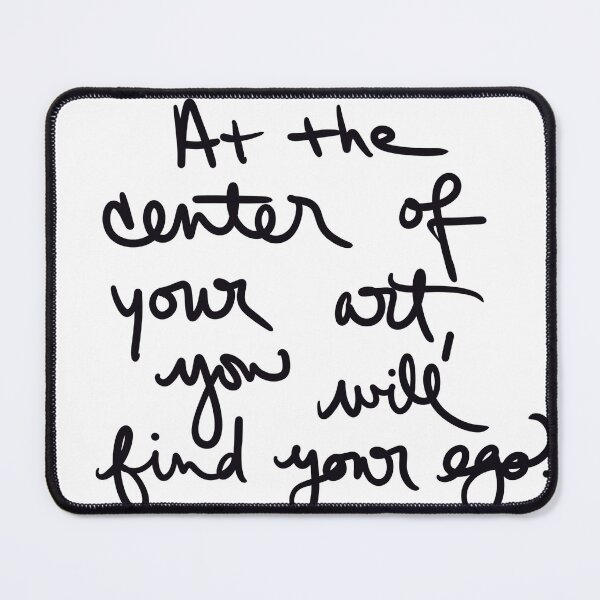 At the
center of
your art,
you will
find your ego.